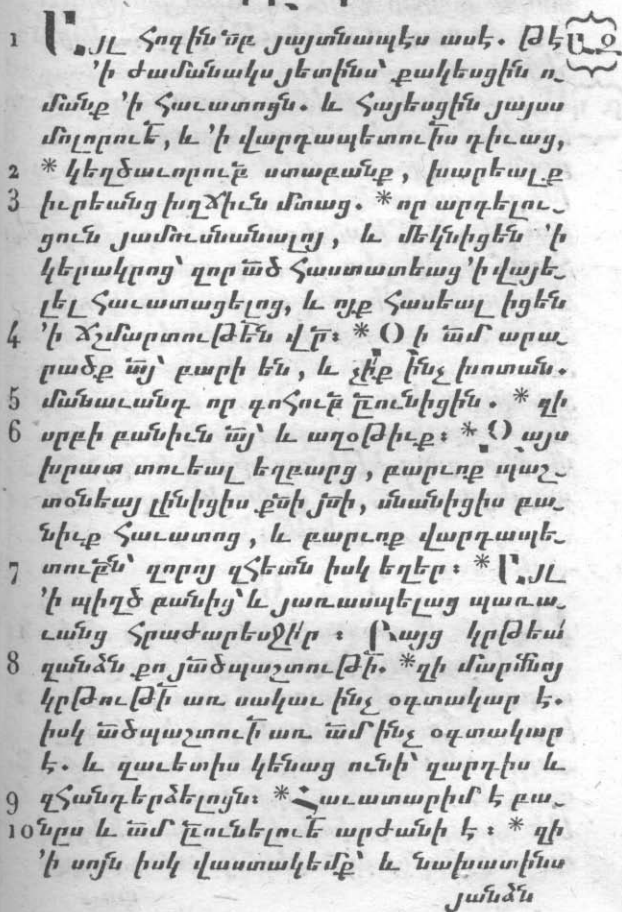 1 Այլ հոգին սբ յայտնապէս ասէ. թէ
'ի ժամանակս յետինս՝ քակեսցին ո֊
մանք 'ի հաւատոցն. և հայեսցին յայսս
մոլորուե̅, և 'ի վարդապետուի̅ս դիւաց,
2 * կեղծաւորուբ̅ ստաբանք, խարեալ ք
3 իւրեանց խղճիւն մտաց. * որ արգելու֊
ցուն յամուսնանալոյ, և մեկնիցեն 'ի
կերակրոց՝ զոր ա̅ծ հաստատեաց 'ի վայե֊
լել հաւատացելոց, և ոյք հասեալ իցեն
4 'ի ճշմարտութե̅ն վր̅: * Զի ա̅մ արա֊
րածք ա̅յ՝ բարի են, և չիք ինչ խոտան.
5 մանաւանդ որ գոհուբ̅ ը̅ունիցին. * զի
6 սրբի բանիւն ա̅յ՝ և աղօթիւք: * Զայս
խրատ տուեալ եղբարց, բարւոք պաշ֊
տօնեայ լինիցիս ք̅սի յ̅սի, սնանիցիս բա֊
նիւք հաւատոց, և բարւոք վարդապե֊
7 տուբ̅ն՝ զորոյ զհետն իսկ եղեր: * Այլ
'ի պիղծ բանից՝ և յառասպելաց պառա֊
ւանց հրաժարեսջի՛ր: Բայց կրթեա՛
8 զանձն քո յա̅ծպաշտութի̅. * զի մարմնոյ
կրթութի̅ առ սակաւ ինչ օգտակար է.
իսկ ա̅ծպաշտուի̅ առ ա̅մ ինչ օգտակար
է. և զաւետիս կենաց ունի՝ զարդիս և
9 զհանդերձելոցն: * Հաւատարիմ է բա֊
10 նըս և ա̅մ ը̅ունելուե̅ արժանի է: * զի
'ի սոյն իսկ վաստակեմք՝ և նախատինս
յանձն